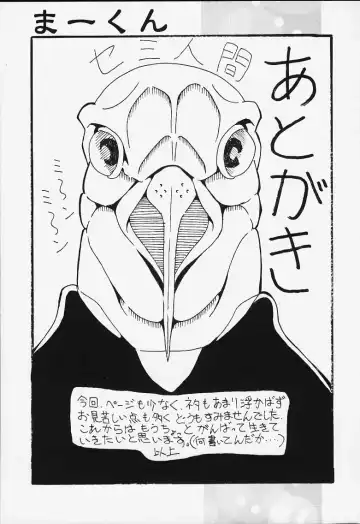 まーくん
セミ人間
あとがき
ミ〜〜ン
ミ〜〜ン
今回、ページも少なく、ネタもあまり浮かばず
お見苦しい点も多く どうもすみませんでした。
これからは もうちょっと がんばって 生きて
いきたいと思います。(何書いてんだか...)
以上